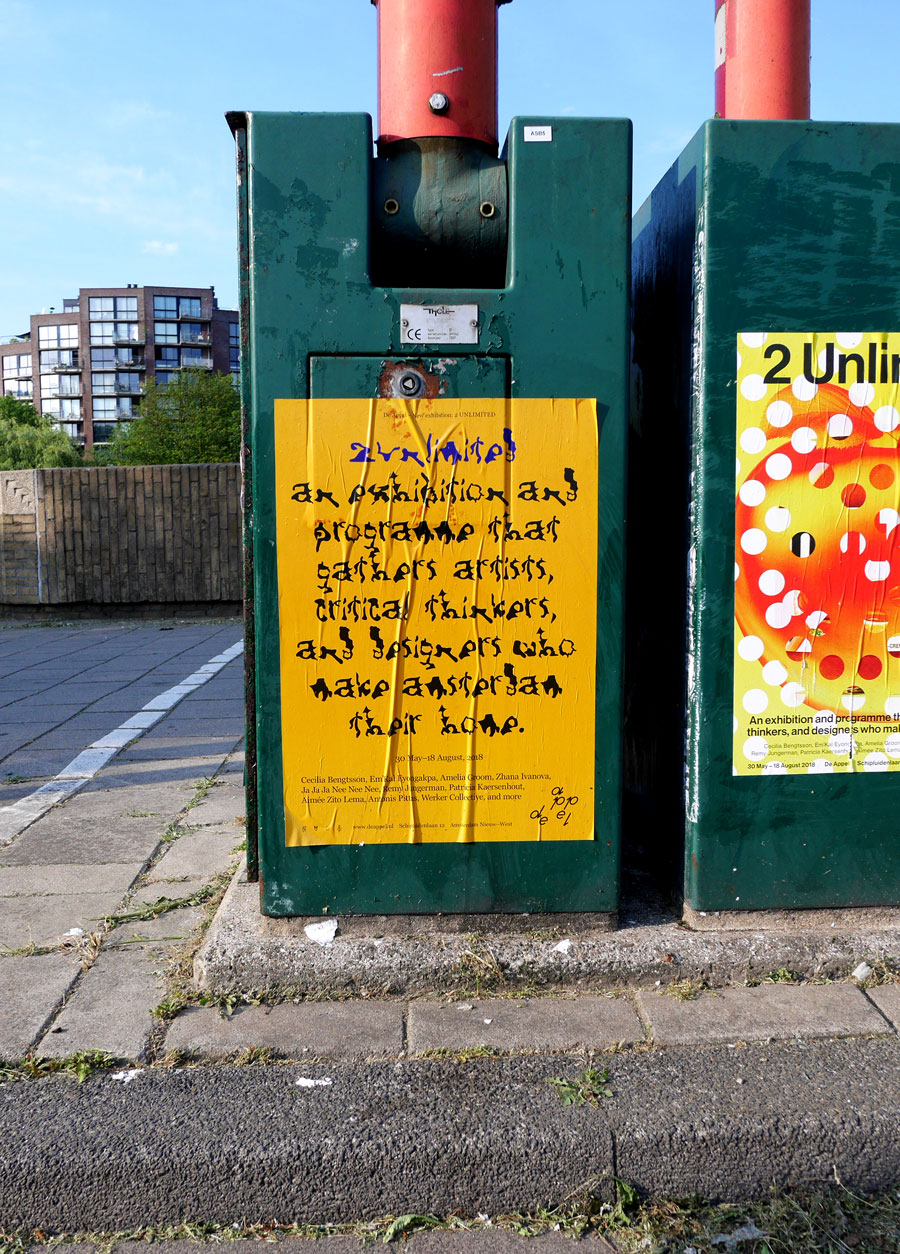 ASB5
THOLE
CE
De Appel – New exhibition: 2 UNLIMITED
2 unlimited
an exhibition and
programme that
gathers artists,
critical thinkers,
and designers who
make amsterdam
their home.
30 May–18 August, 2018
Cecilia Bengtsson, Em'Kal Eyongakpa, Amelia Groom, Zhana Ivanova,
Ja Ja Ja Nee Nee Nee, Remy Jungerman, Patricia Kaersenhout,
Aimée Zito Lema, Antonis Pittas, Werker Collective, and more
de appel
www.deappel.nl Schipluidenlaan 12 Amsterdam Nieuw-West
2 Unlim
An exhibition and programme th
thinkers, and designers who mak
Cecilia Bengtsson, Em'Kal Eyongakpa, Amelia Groom
Remy Jungerman, Patricia Kaersenhout, Aimée Zito Lema,
30 May – 18 August 2018 De Appel Schipluidenlaan